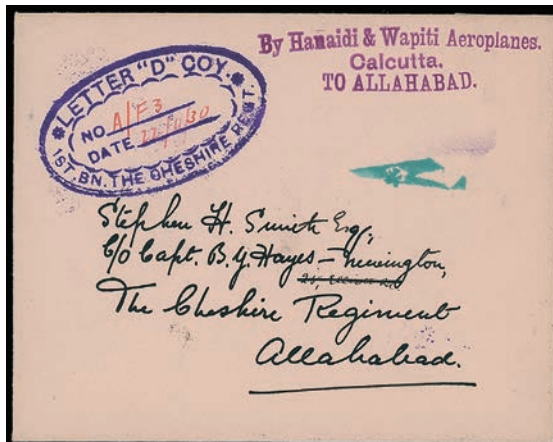 By Hanaidi & Wapiti Aeroplanes.
Calcutta.
TO ALLAHABAD.
LETTER "D" COY.
NO A/F3
DATE 22/11/30
1ST. BN. THE CHESHIRE REGT.
Stephen H. Smith Esq.,
C/o Capt. B. Y. Hayes - Newington,
The Cheshire Regiment
Allahabad.